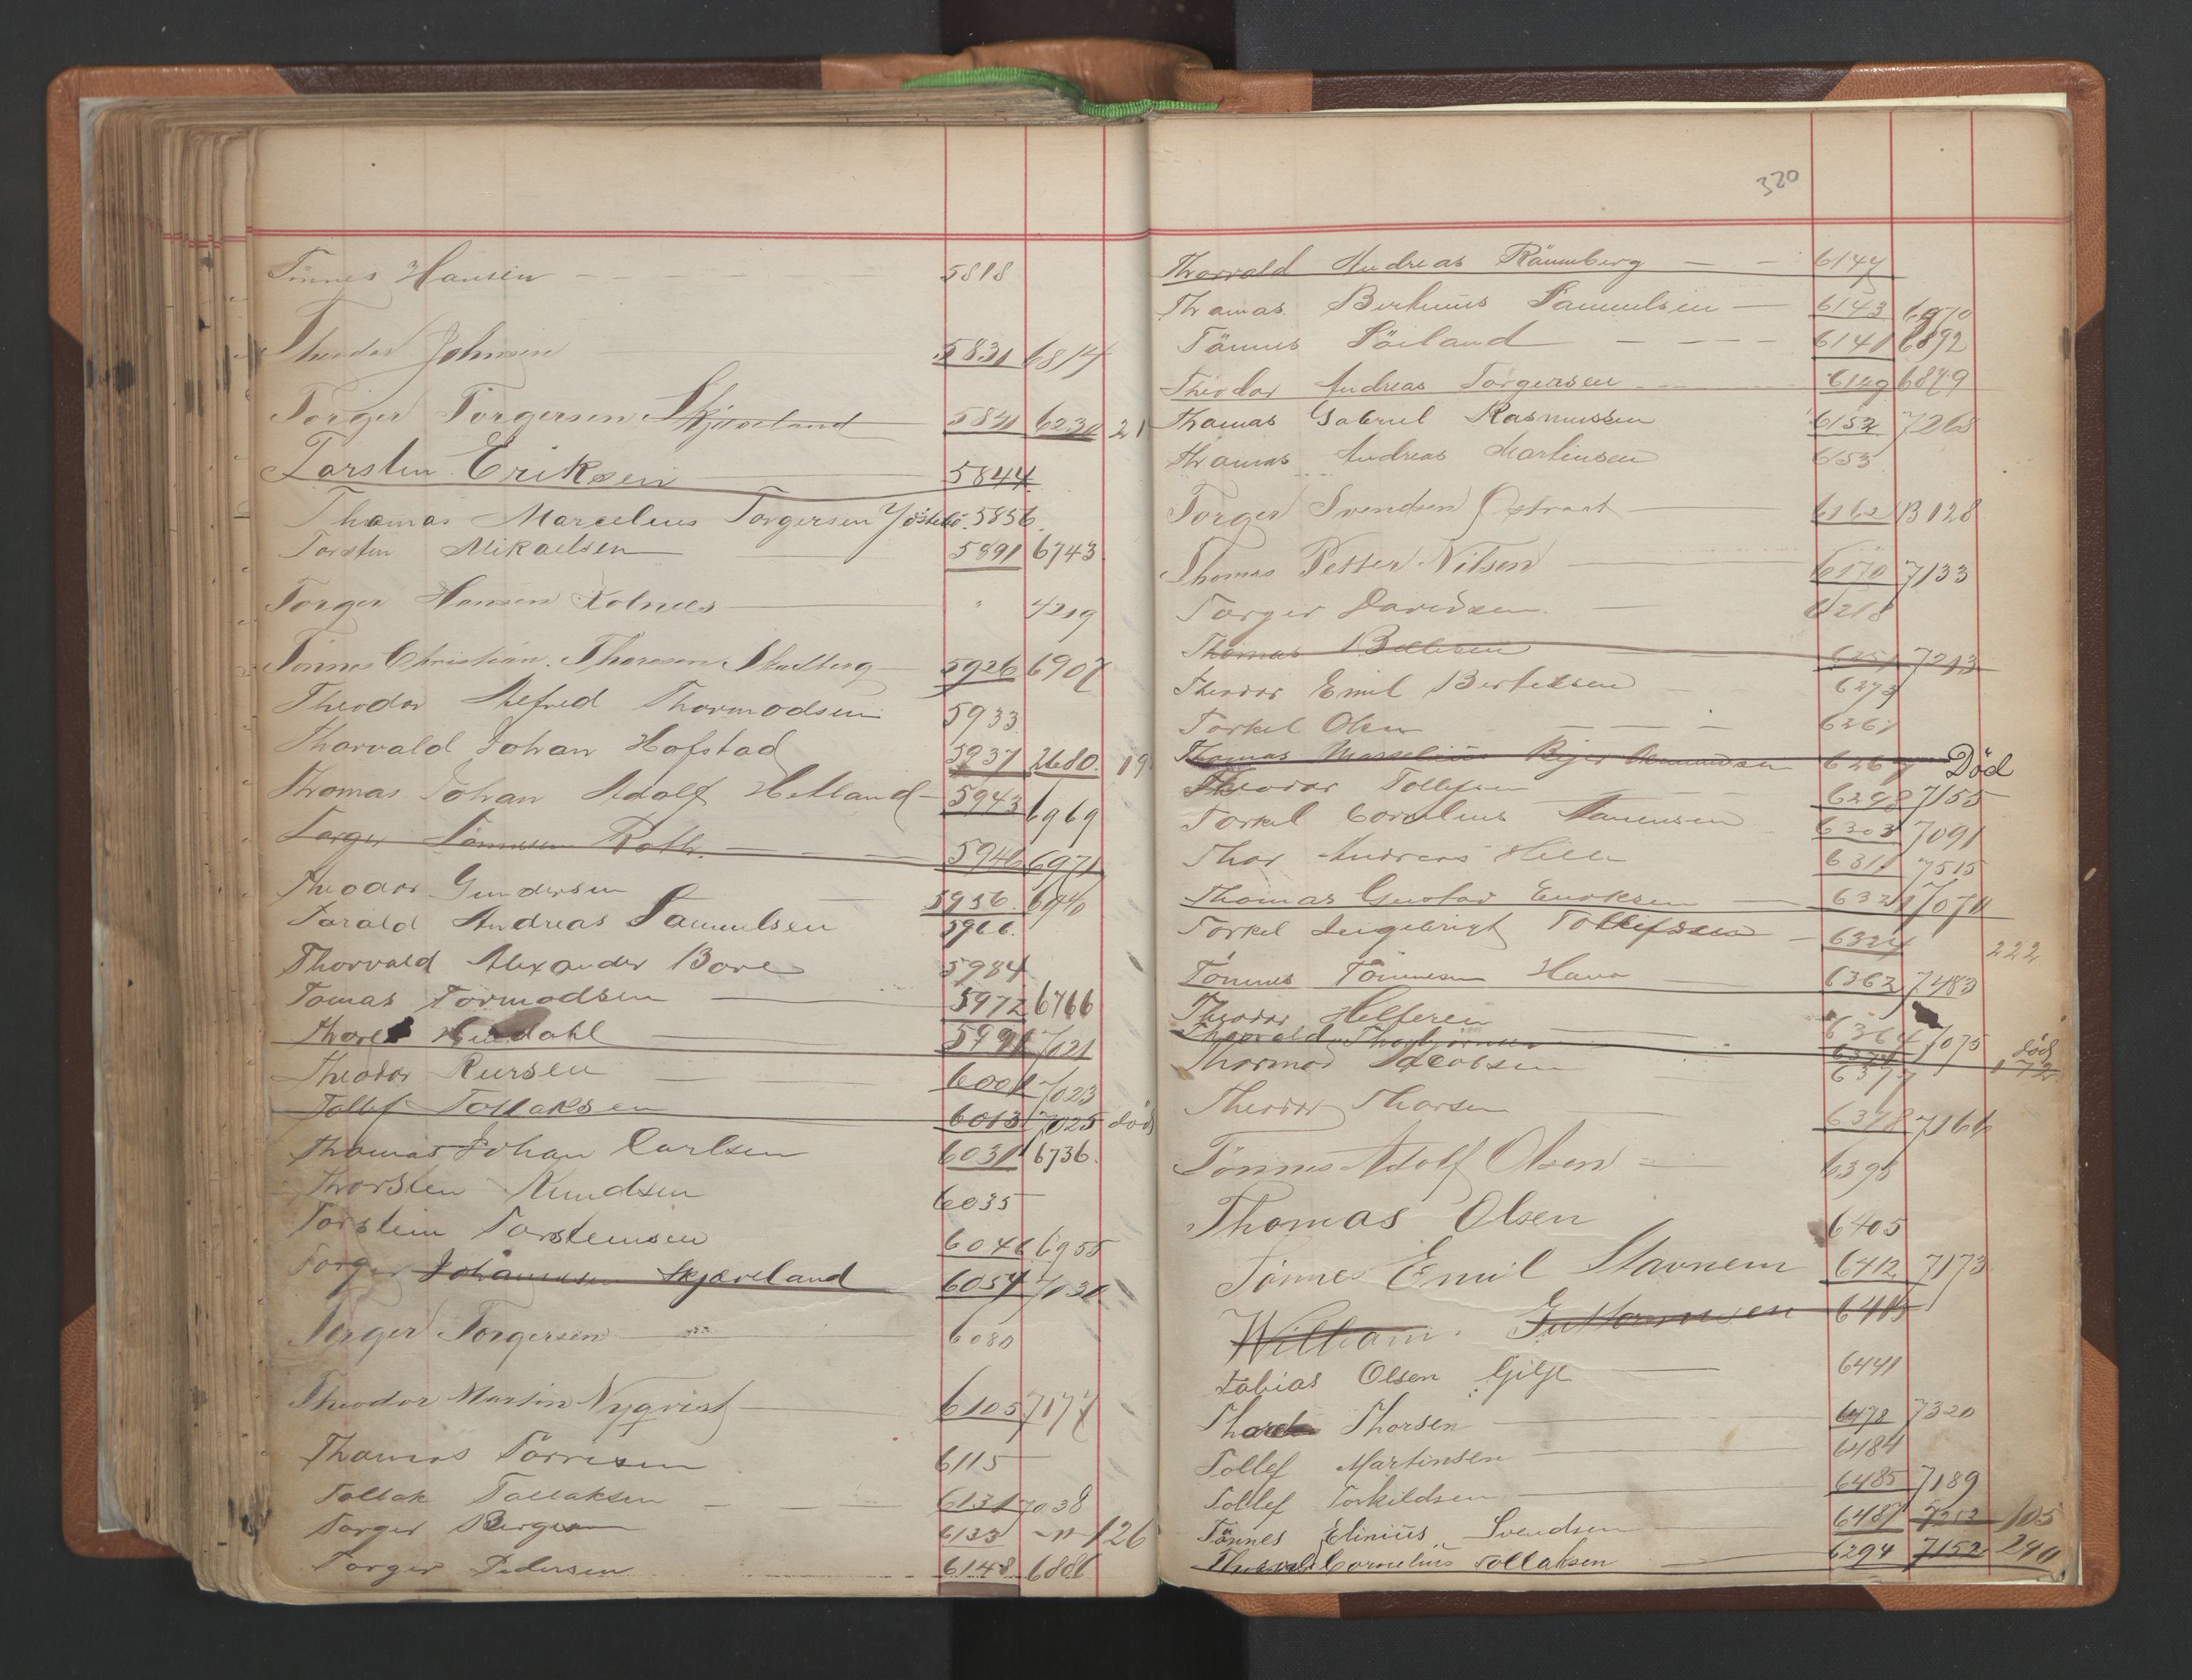 Tönnes Hansen 5818
Theodor Johnsen 5831 6814
Torger Torgersen Skjæveland 5841 6230 21
Torsten Eriksen 5844
Thomas Marcelius Torgersen 5856
Torsten Mikaelsen 5891 6743
Torger Hansen Kolnees " 4219
Tönnes Christian Thoresen Stadberg 5926 6907
Theodor Alfred Thormodsen 5933
Thorvald Johan Hofstad 5937 2680 19
Thomas Johan Adolf Hetland 5943 6969
Torger Tönnesen Roth 5946 6971
Theodor Gundersen 5956 6940
Torald Andreas Samuelsen 5966
Thorvald Alexander Bore 5984
Tomas Tormodsen 5972 6766
Thore 5991 7021
Theodor Iversen 6001 7023
Tollef Tollaksen 6013 7025 död
Thomas Johan Carlsen 6031 6736
Thorsten Knudsen 6035
Torstein Torsteinsen 6046 6955
Torger Johannesen Skjæveland 6054 7031
Torger Torgersen 6080
Theodor Martin Nyqvist 6105 7177
Thomas Torrisen 6115
Tollak Tollaksen 6131 7038
Torger Bergesen 6133 -"- 126
Torger Pedersen 6148 6886
320
Thorvald Andreas Rännberg 6147
Thomas Bertinius Samuelsen 6143 6970
Tönnes Söiland 6141 6892
Theodor Andreas Torgersen 6149 6879
Thomas Gabriel Rasmussen 6152 7268
Thomas Andreas Martinsen 6153
Torger Svendsen Östraat 6162 B 128
Thomas Petter Nilsen 6170 7133
Torger Davidsen 6218
Thomas 6251 7213
Theodor Emil Bertelsen 6273
Torkel Olsen 6261
Thomas Marselius 6267 Död
Theodor Tollefsen 6298 7155
Torkel Cornelius 6303 7091
Thor Andreas Hille 6311 7515
Thomas Gustav Enoksen 6321 7071
Torkel Ingebrigt Tollefsen 6324 222
Tönnes Tönnesen Hana 6362 7483
Theodor Helleren 6364 7075
Thorvald Thorbjörnsen 6374 död 172
Thormod Jacobsen 6377
Theodor Thorsen 6378 7166
Tönnes Adolf Olsen 6398
Thomas Olsen 6405
Tönnes Emil Stavnem 6412 7173
William Guttormsen 6415
Tobias Olsen Gilje 6441
Thore Thorsen 6478 7320
Tollef Martinsen 6484
Tollef Torkildsen 6485 7189
Tönnes Elinius Svendsen 6487 7253 105
Thorvald Cornelius Tollaksen 6294 7152 240